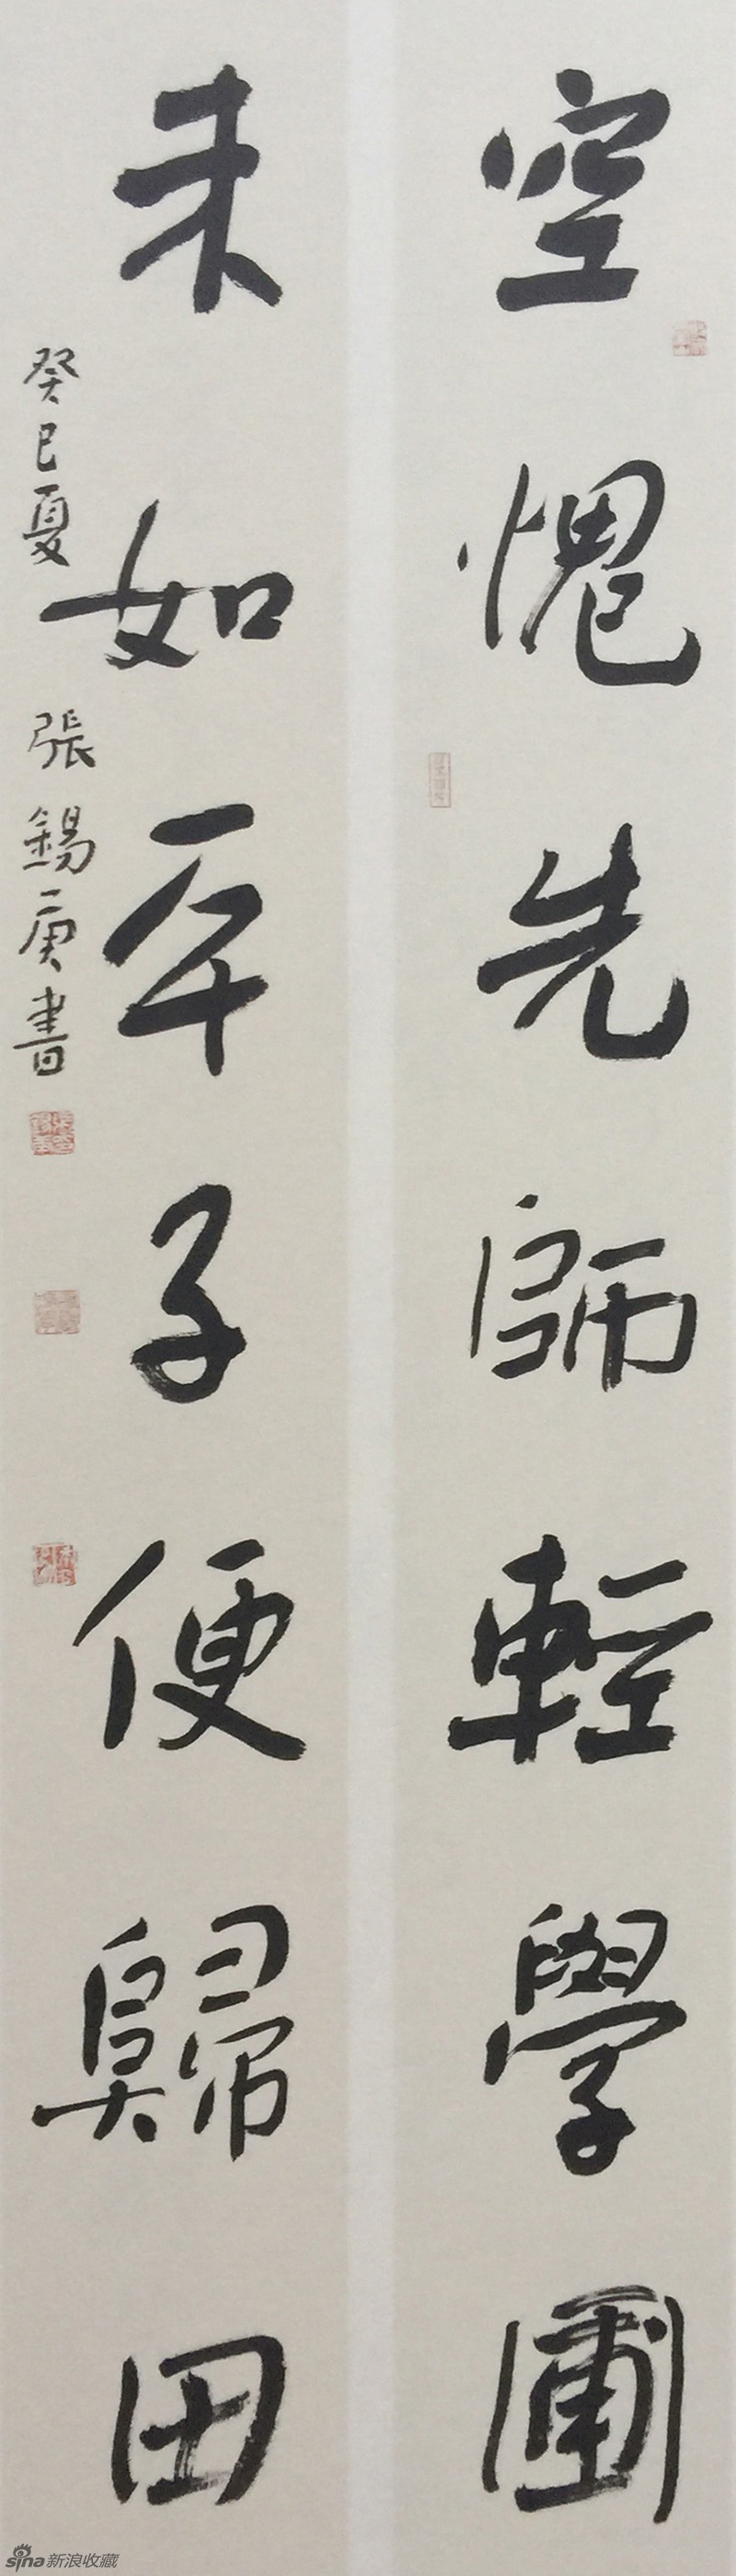 空愧先師輕學圃
未如平子便歸田
癸巳夏 張錫庚書
sina新浪收藏